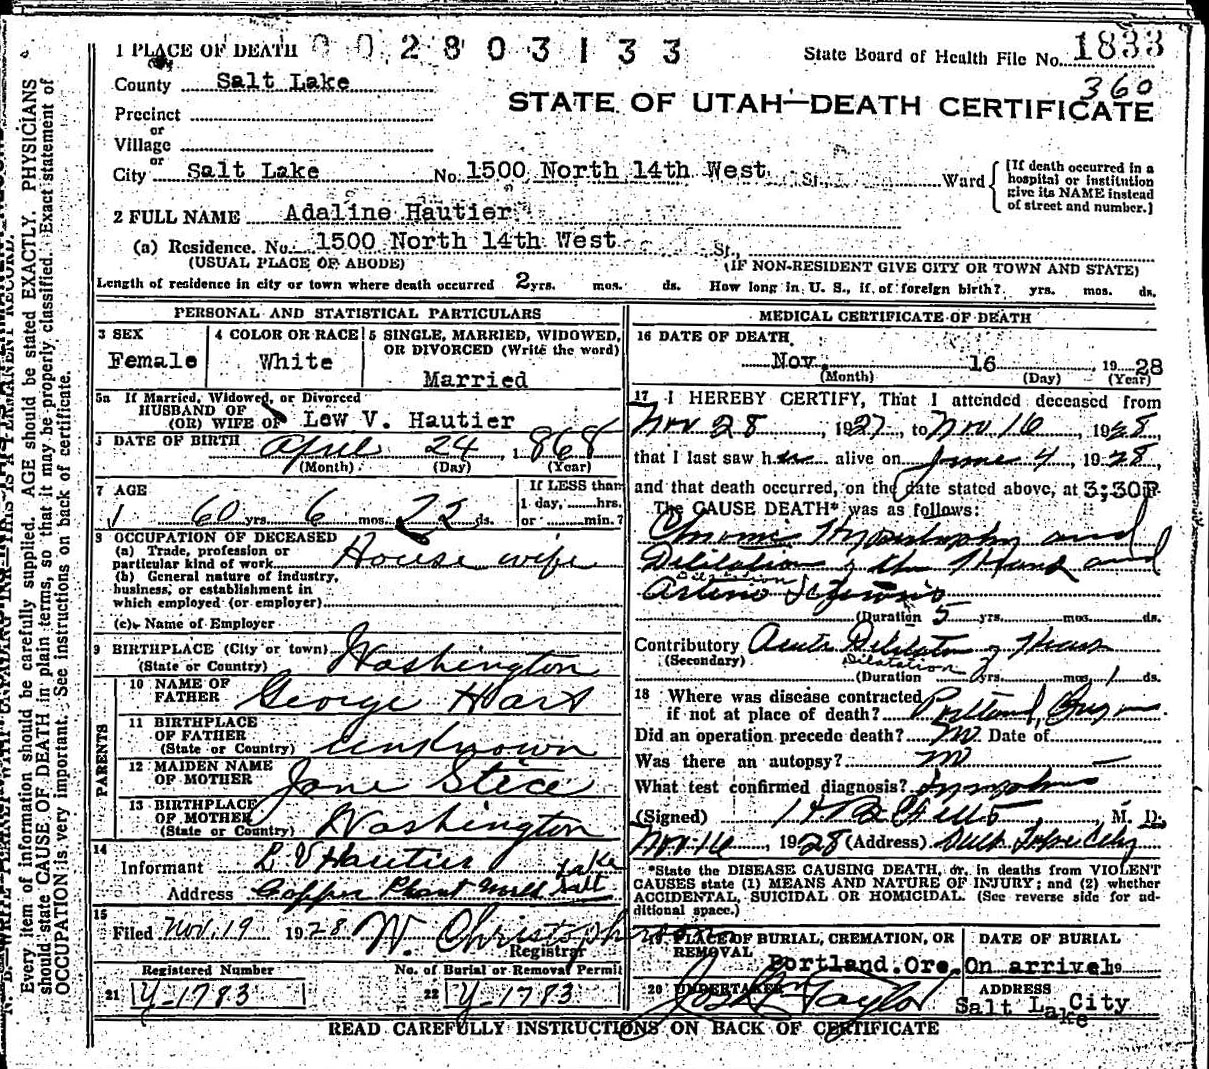 1 PLACE OF DEATH 0 0 2 8 0 3 1 3 3
State Board of Health File No. 1833
360
County Salt Lake
STATE OF UTAH—DEATH CERTIFICATE
Precinct
or
Village
or
City Salt Lake No. 1500 North 14th West St. Ward
[If death occurred in a
hospital or institution
give its NAME instead
of street and number.]
2 FULL NAME Adaline Hautier
(a) Residence. No. 1500 North 14th West St.
(USUAL PLACE OF ABODE) (IF NON-RESIDENT GIVE CITY OR TOWN AND STATE)
Length of residence in city or town where death occurred 2 yrs. mos. ds. How long in U. S., if of foreign birth? yrs. mos. ds.
PERSONAL AND STATISTICAL PARTICULARS
3 SEX
Female
4 COLOR OR RACE
White
5 SINGLE, MARRIED, WIDOWED,
OR DIVORCED (Write the word)
Married
5a If Married, Widowed, or Divorced
HUSBAND OF
(OR) WIFE OF Lew V. Hautier
6 DATE OF BIRTH April 24, 1868
(Month) (Day) (Year)
7 AGE
60 yrs. 6 mos. 22 ds.
If LESS than
1 day, hrs.
or min.?
8 OCCUPATION OF DECEASED
(a) Trade, profession or
particular kind of work House wife
(b) General nature of industry,
business, or establishment in
which employed (or employer)
(c) Name of Employer
9 BIRTHPLACE (City or town)
(State or Country) Washington
PARENTS
10 NAME OF
FATHER George Hart
11 BIRTHPLACE
OF FATHER
(State or Country) Unknown
12 MAIDEN NAME
OF MOTHER Jane Stice
13 BIRTHPLACE
OF MOTHER
(State or Country) Washington
14
Informant L V Hautier
Address Copper Plant Salt Lake
15
Filed Nov. 19 1928 W. Christopherson
Registrar
Registered Number
21 Y-1783
No. of Burial or Removal Permit
22 Y-1783
MEDICAL CERTIFICATE OF DEATH
16 DATE OF DEATH
Nov. 16 1928
(Month) (Day) (Year)
17 I HEREBY CERTIFY, That I attended deceased from
Nov 28, 1927, to Nov 16, 1928
that I last saw her alive on June 4, 1928,
and that death occurred, on the date stated above, at 3:30P.
The CAUSE DEATH* was as follows:
Chronic Hypertrophy and
Dilitation of the Heart and
Dilatation
Arterio Sclerosis
(Duration 5 yrs. mos. ds.
Contributory Acute Dilitation of Heart
(Secondary) Dilatation
(Duration 0 yrs. mos. 1 ds.
18 Where was disease contracted
if not at place of death? Portland, Oregon
Did an operation precede death? no Date of
Was there an autopsy? no
What test confirmed diagnosis?
(Signed) M. D.
Nov. 16, 1928 (Address) Salt Lake City
*State the DISEASE CAUSING DEATH, or, in deaths from VIOLENT
CAUSES state (1) MEANS AND NATURE OF INJURY; and (2) whether
ACCIDENTAL, SUICIDAL OR HOMICIDAL. (See reverse side for ad-
ditional space.)
19 PLACE OF BURIAL, CREMATION, OR
REMOVAL
Portland.Ore.
DATE OF BURIAL
On arrivel 19
20 UNDERTAKER
Jos Wm Taylor
ADDRESS
Salt Lake City
READ CAREFULLY INSTRUCTIONS ON BACK OF CERTIFICATE
Every item of information should be carefully supplied. AGE should be stated EXACTLY. PHYSICIANS
should state CAUSE OF DEATH in plain terms, so that it may be properly classified. Exact statement of
OCCUPATION is very important. See instructions on back of certificate.